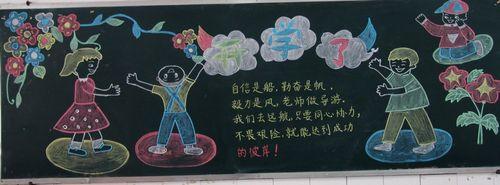 开学了
自信是船,勤奋是帆,
毅力是风,老师做导游.
我们去远航,只要同心协力,
不畏艰险,就能达到成功
的彼岸!